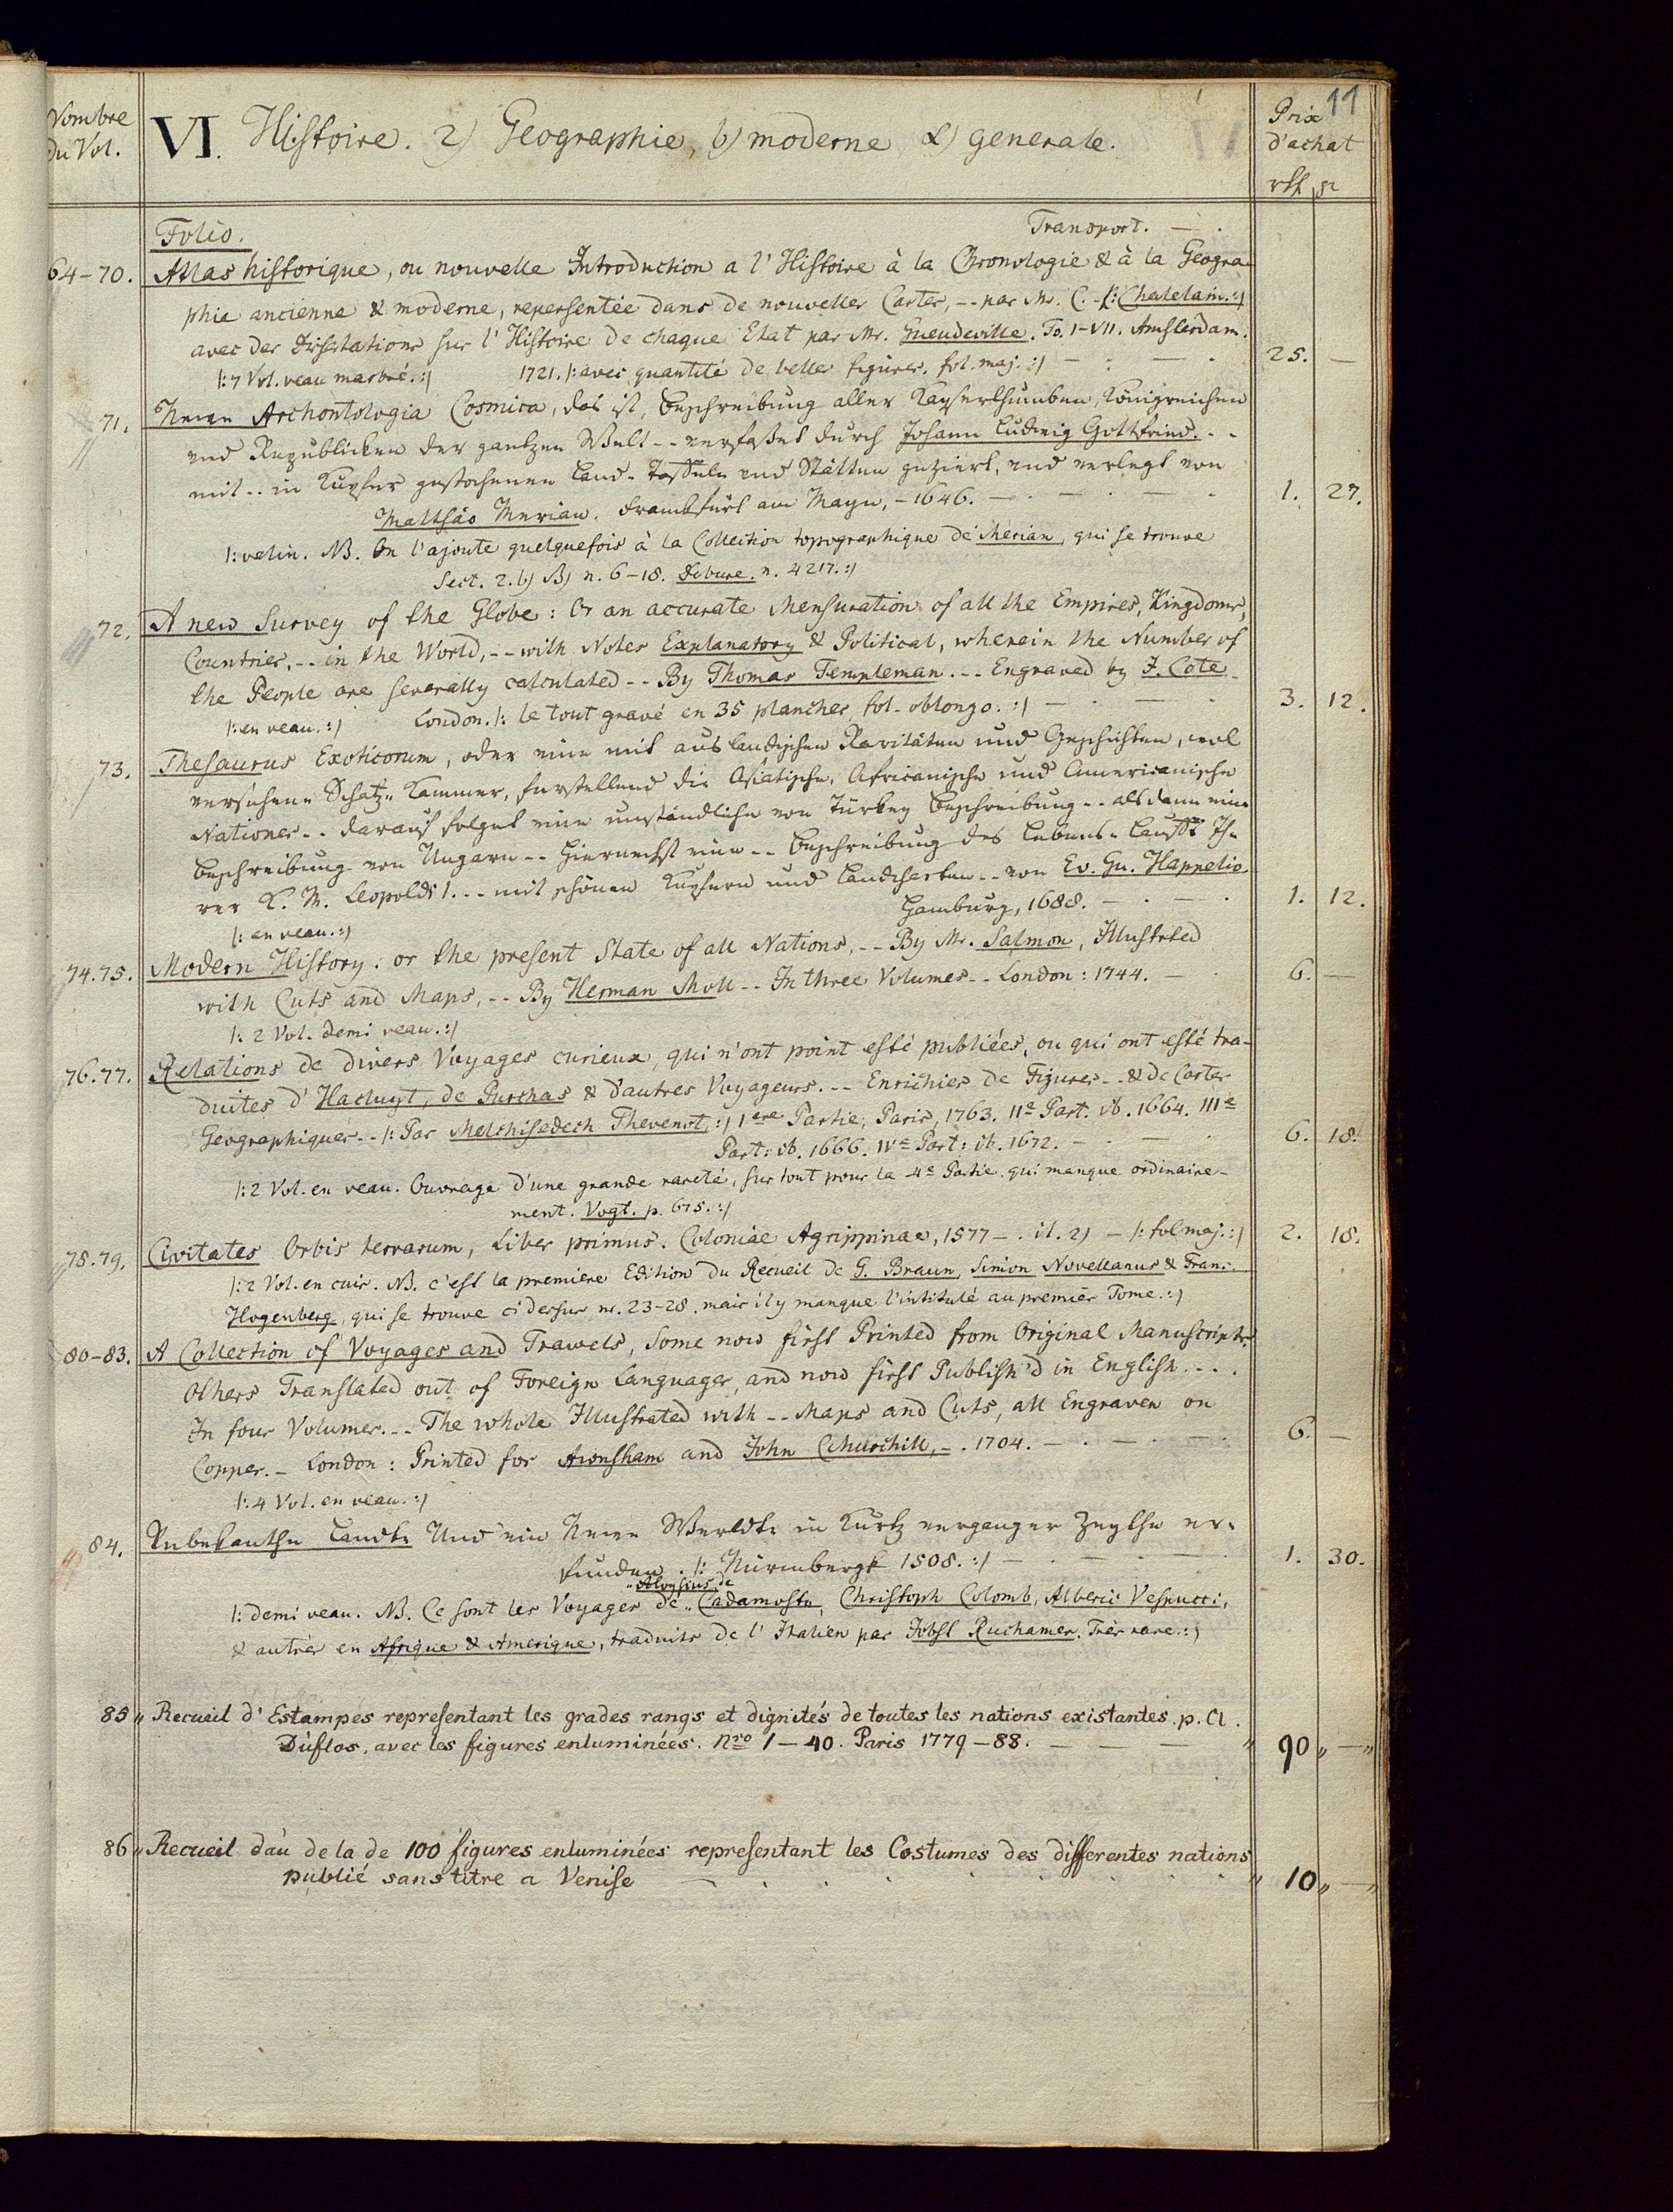 11
Nombre du Vol.
VI. Histoire. 2) Geographie, b) moderne α) generale.
Prix d'achat
rth gr
Folio. Transport. — .
64-70. Atlas historique, ou nouvelle Introduction a l'Histoire à la Chronologie & à la Geogra-
phie ancienne & moderne, repersentée dans de nouvelles Cartes, -- par Mr. C. - /: Chatelain. :/
avec des Dissertations sur l'Histoire de chaque Etat par Mr. Gueudeville. To. I-VII. Amsterdam.
/: 7 Vol. veau marbré. :/ 1721. /: avec quantité de belles figures. fol. maj. :/ — . — . 25. —
71. Neuwe Archontologia Cosmica, das ist, Beschreibung aller Kayserthumben, Königreichen
und Republicken der gantzen Welt -- verfasset durch Johann Ludwig Gottfried. --
mit -- in Kupfer gestochenen Land-Taffeln und Stätten geziert, und verlegt von
Matthäo Merian. Franckfurt am Mayn, - 1646. — . — . — . 1. 27.
/: velin. NB. On l'ajoute quelquefois à la Collection topographique de Merian, qui se trouve
Sect. 2. b) β) n. 6-18. Debure. n. 4217. :/
72. A new Survey of the Globe: Or an accurate Mensuration of all the Empires, Kingdoms,
Countries, -- in the World, -- with Notes Explanatory & Political, wherein the Number of
the People are severally calculated -- By Thomas Templeman. -- Engraved by J. Cote
/: en veau. :/ London. /: le tout gravé en 35 planches, fol. oblongo. :/ — . — . 3. 12.
73. Thesaurus Exoticorum, oder eine mit auslandischen Raritäten und Geschichten, wol
versehene Schatz-Kammer, furstellend die Asiatische, Africanische und Americanische
Nationes -- darauf folget eine umständliche von Türkey Beschreibung -- als dann eine
Beschreibung von Ungarn -- Hiernechst eine -- Beschreibung des Lebens-Lauffs Ih-
rer K. M. Leopolds I. -- mit schönen Kupfern und Landcharten -- von Ev. Gu. Happelio.
/: en veau. :/ Hamburg, 1688. — . — . 1. 12.
74.75. Modern History: or the present State of all Nations, -- By Mr. Salmon, Illustrted
with Cuts and Maps, -- By Herman Moll -- In three Volumes -- London: 1744. — . 6. —
/: 2 Vol. demi veau. :/
76.77. Relations de divers Voyages curieux, qui n'ont point esté publiées, ou qui ont esté tra-
duites d'Hacluyt, de Purchas & d'autres Voyageurs. -- Enrichies de Figures -- & de Cartes
Geographiques -- /: Par Melchisedech Thevenot, :/ 1ere Partie, Paris, 1763. IIe Part. ib. 1664. IIIe
Part: ib. 1666. IVe Part: ib. 1672. — . — . 6. 18.
/: 2 Vol. en veau. Ouvrage d'une grande rareté, sur tout pour la 4e Partie. qui manque ordinaire-
ment. Vogt. p. 675. :/
78.79. Civitates Orbis terrarum, Liber primus. Coloniae Agrippinae, 1577 -. it. 2) - /: fol maj. :/ 2. 18.
/: 2 Vol. en cuir. NB. c'est la premiere Edition du Recueil de G. Braun, Simion Novellanus & Franc.
Hogenberg, qui se trouve ci dessus nr. 23-28. mais il y manque l'intitulé au premier Tome. :/
80-83. A Collection of Voyages and Trawels, Some now first Printed from Original Manuscripts,
Others Translated out of Foreign Languages, and now first Publish'd in English. ---
In four Volumes. -- The whole Illustrated with -- Maps and Cuts, all Engraven on
Copper. - London: Printed for Awnsham and John Churchill, -. 1704. — . — . — . 6. —
/: 4 Vol. en veau. :/
84. Unbekanthe Landte Und ein Newe Werldte in Kurtz verganger Zeythe er-
funden. /: Nürmbergk 1508. :/ — . — . — 1. 30.
Aloysius de
/: demi veau. NB. Ce sont les Voyages de Cadamosto, Christoph Colomb, Alberic Vespucci,
& autres en Afrique & Amerique, traduits de l'Italien par Jobst Ruchamer. Très rare. :/
85 " Recueil d'Estampes representant les grades rangs et dignités de toutes les nations existantes. p. Cl.
Duflos, avec les figures enluminées. Nro 1-40. Paris 1779-88. — — — " 90 " — "
86 " Recueil d'au de la de 100 figures enluminées representant les Costumes des differentes nations
publié sans titre a Venise — . . . . . . " 10 " — "